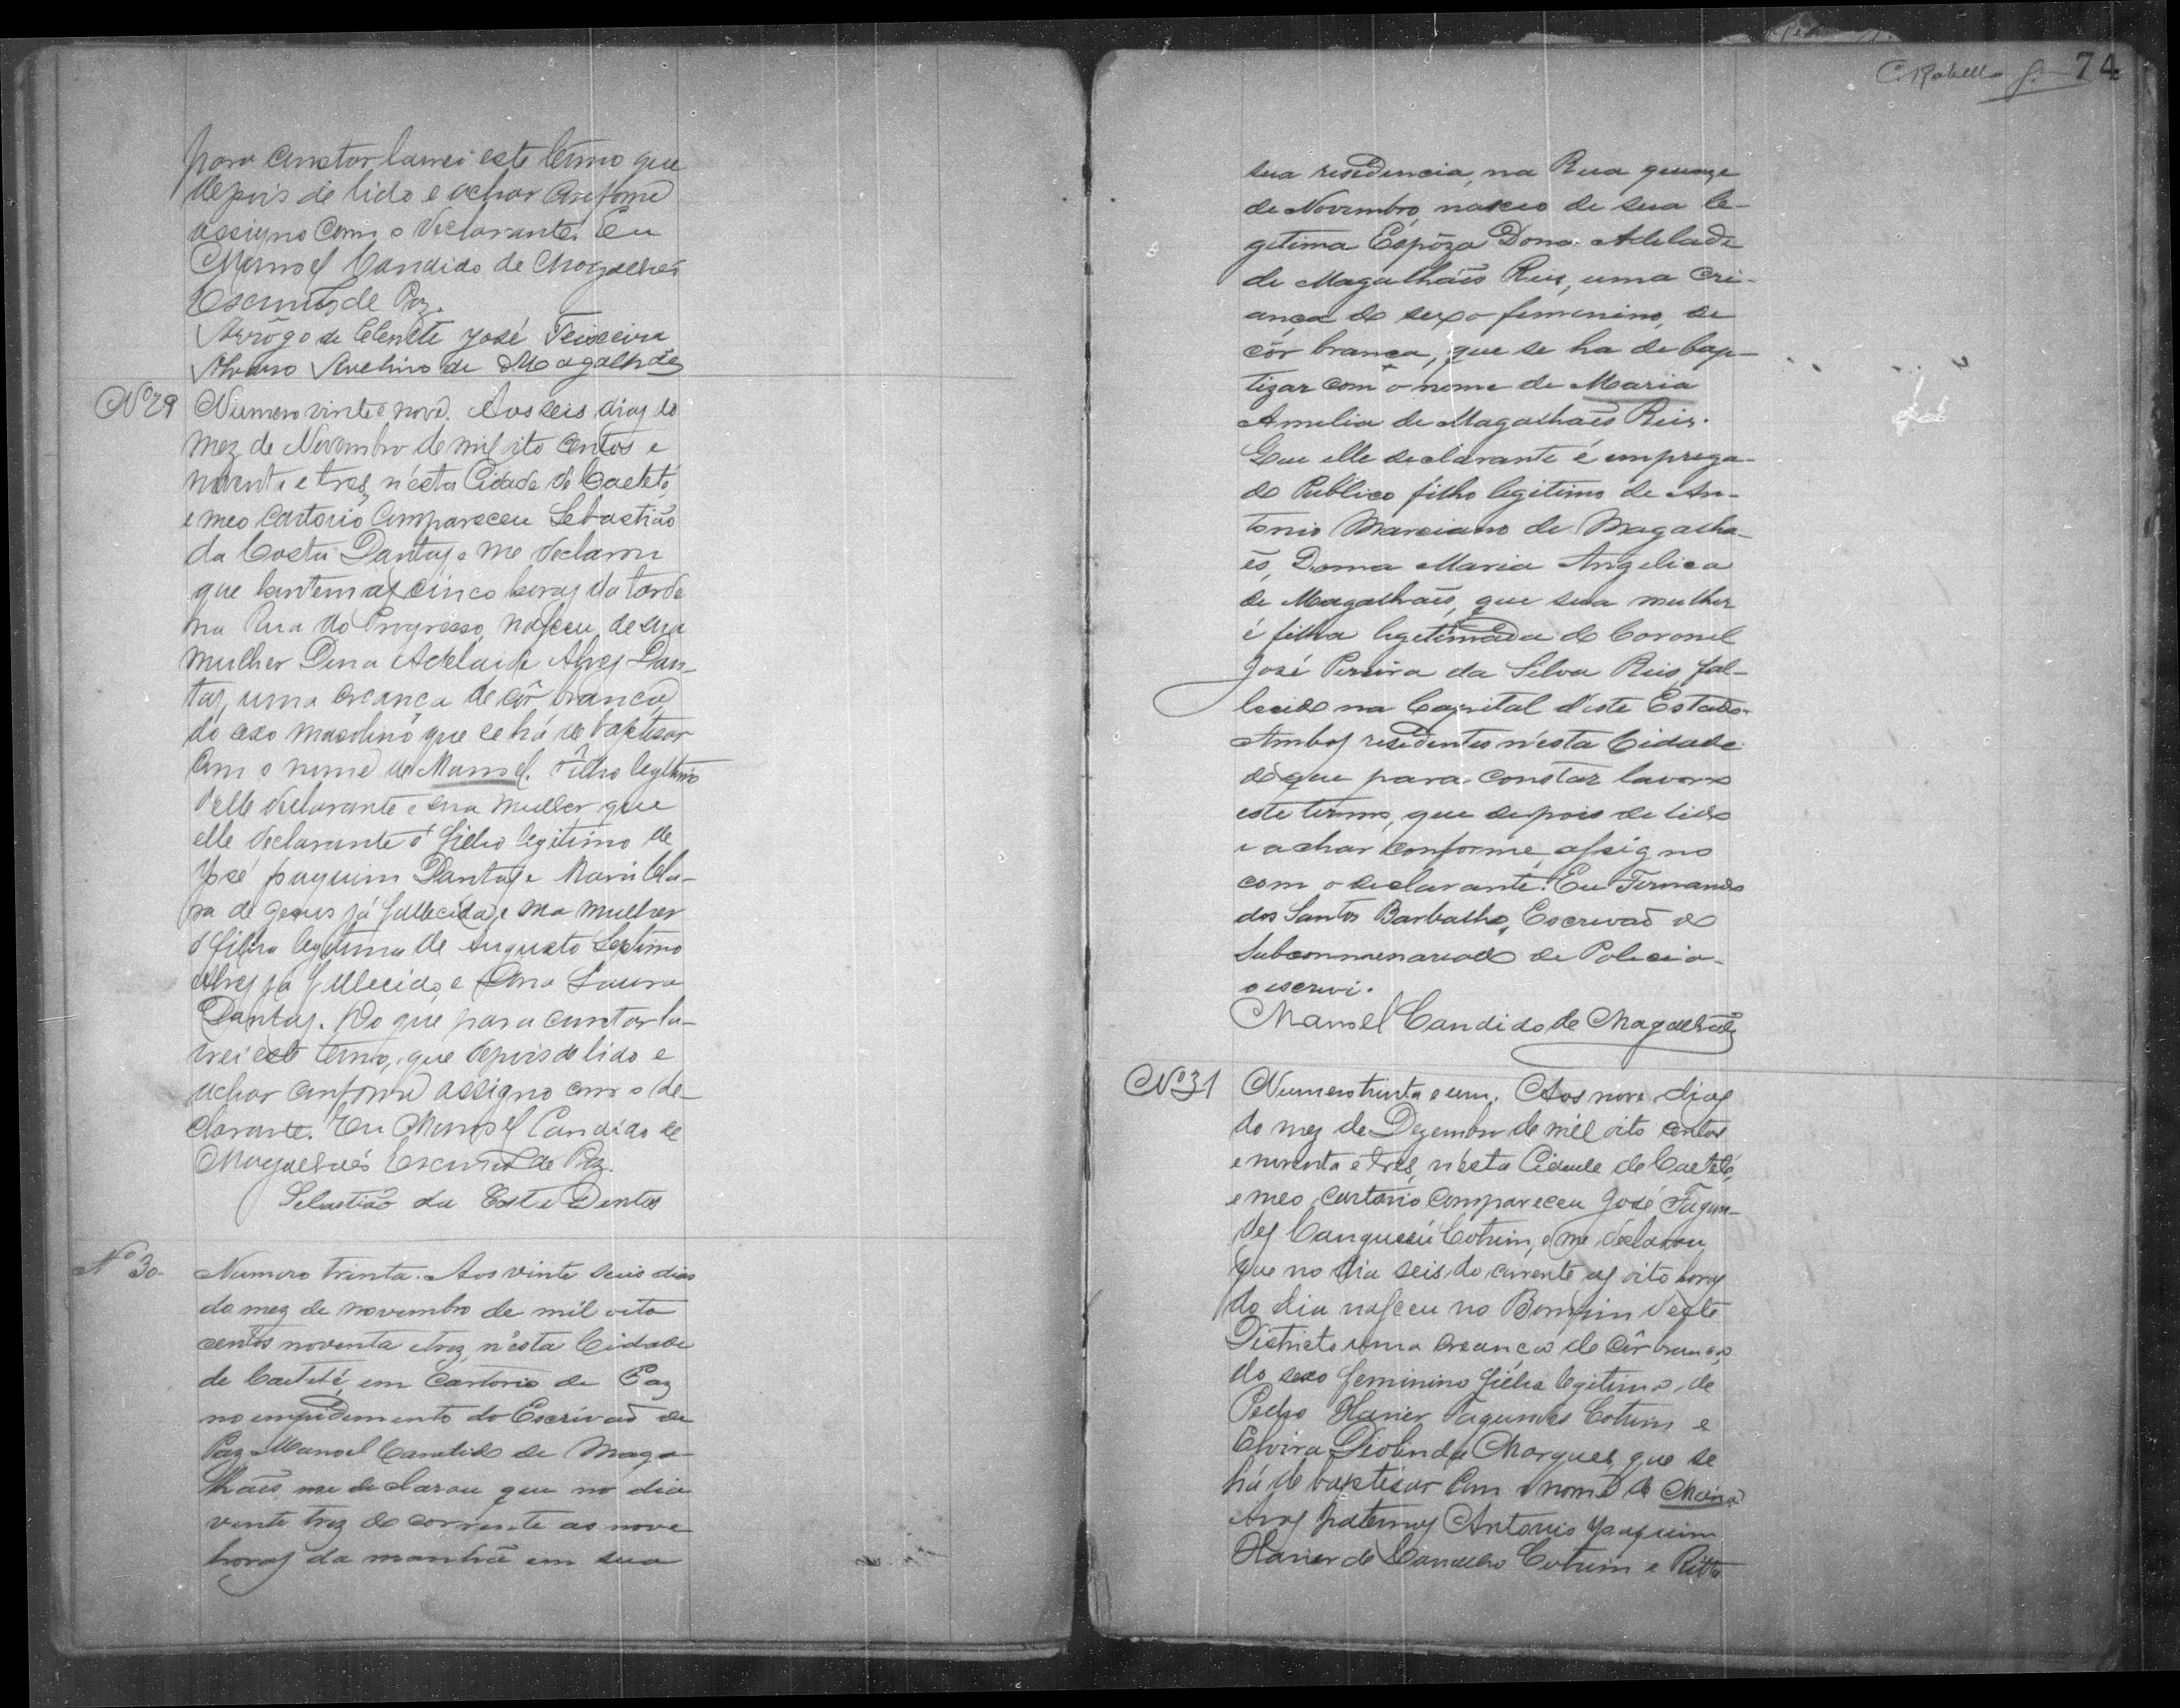 para constar lavrei este termo que
depois de lido e achar conforme
assigno com o declarante. Eu
Manoel Candido de Magalhães
Escrivão de Paz.
Arrôgo de Clemente José Teixeira
Alvaro Avelino de Magalhães
Nº 29
Numero vinte e nove. Aos seis dias do
mez de Novembro de mil oito centos e
noventa e tres, n'esta Cidade de Caeteté,
e meo Cartorio Compareceu Sebastião
da Costa Dantas e me declarou
que hontem as cinco horas da tarde
na Rua do Progresso, nasceu de sua
mulher Dona Adelaide Alves Dan-
tas, uma creança de côr branca,
do sexo masculino que se há de baptisar
com o nome de Manoel. Filho legitimo
delle declarante e sua mulher, que
elle declarante é filho legitimo de
José Joaquim Dantas e Maria Cla-
ra de Jesus já fallecida, e sua mulher
é filha legitima de Augusto Septimo
Alves já fallecido, e Dona Laura
Dantas. Do que para constar la-
vrei este termo, que depois de lido e
achar conforme assigno com o de-
clarante. Eu Manoel Candido de
Magalhães Escrivão de Paz.
Sebastião da Costa Dantas
Nº 30.
Numero trinta. Aos vinte seis dias
do mez de novembro de mil oito
centos noventa e trez, n'esta Cidade
de Caeteté, em Cartorio de Paz
no empidemento do Escrivaõ de
Paz Manoel Candido de Maga-
lhaẽs, me declarou que no dia
vinte trez do corrente as nove
horas da manhã em sua
C. Rabello 74
sua residencia, na Rua quinze
de Novembro, nasceo de sua le-
gitima Espôza Dona Adelade
de Magalhães Reis, uma cri-
ança do sexo femenino, de
côr branca, que se ha de bap-
tizar com o nome de Maria
Amelia de Magalhaẽs Reis.
Que elle declarante é emprega-
do Publico filho legitimo de An-
tonio Marciano de Magalha-
ẽs, Dona Maria Angelica
de Magalhaẽs, que sua mulher
é filha legetimada do Coronel
José Pereira da Silva Reis, fal-
lecido na Capital d'este Estado.
Ambos residentes n'esta Cidade.
do que para constar lavro
este termo, que depois de lido
e achar conforme, assigno
com o declarante. Eu Fernando
dos Santos Barbalho, Escrivaõ do
Subcommenariado de Policia
o escrevi.
Manoel Candido de Magalhães
Nº 31
Numero trinta e um. Aos nove dias
do mez de Dezembro de mil oito centos
e noventa e tres, n'esta Cidade de Caeteté,
e meo Cartorio compareceu José Fagun-
des Canguçú Cotrim, e me declarou
que no dia seis do corrente as oito horas
do dia nasceu no Bomfim deste
Districto uma creança de côr branca,
do sexo feminino filha legitima, de
Pedro Xavier Fagundes Cotrim e
Elvira Deolinda Marques, que se
há de baptisar com o nome de Maria
Avos paternos Antonio Joaquim
Xavier de Carvalho Cotrim e Ritta